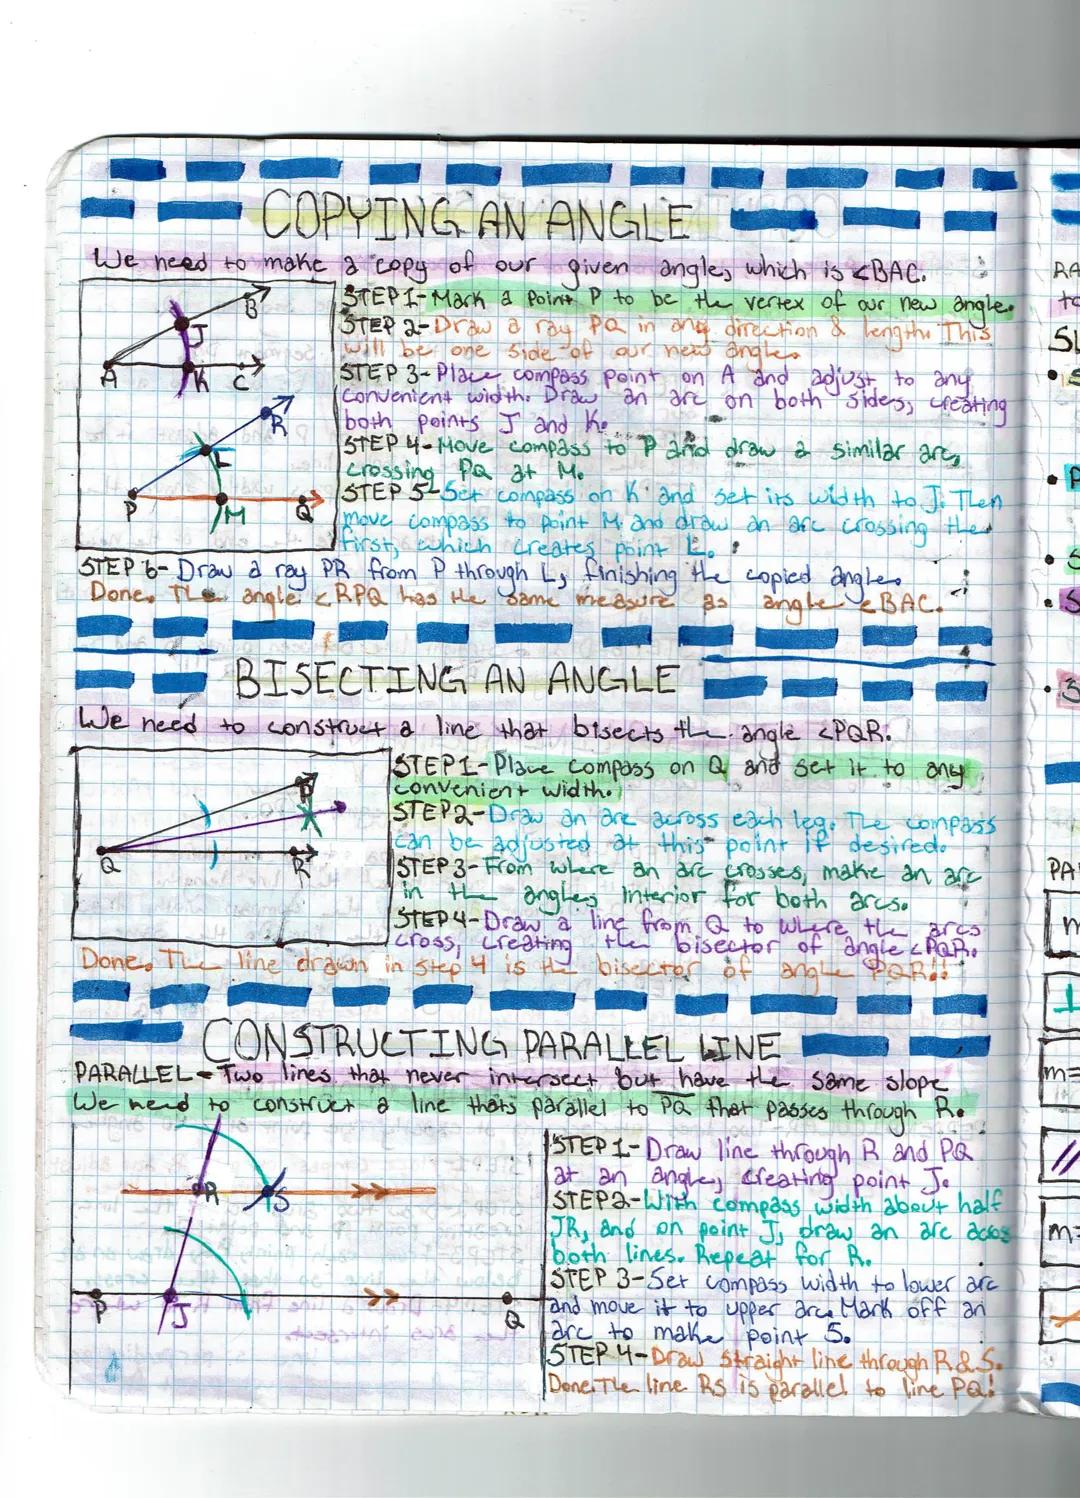 COPYING AN ANGLE
We need to make a copy of our given angle, which is <BAC.
STEP 1- Mark a point P to be the vertex of our new angle.
STEP 2- Draw a ray PQ in any direction & length. This
will be one side of our new angle.
STEP 3- Place compass point on A and adjust to any
convenient width. Draw an arc on both sides, creating
both points J and K.
STEP 4- Move compass to P and draw a similar arc,
crossing PQ at M.
STEP 5- Set compass on K and set its width to J. Then
move compass to point M and draw an arc crossing the
first, which creates point L.
STEP 6- Draw a ray PR from P through L, finishing the copied angle.
Done. The angle <RPQ has the same measure as angle <BAC.
B
J
A
K
C
R
L
P
M
Q
BISECTING AN ANGLE
We need to construct a line that bisects the angle <PQR.
STEP 1- Place compass on Q and set it to any
convenient width.
STEP 2- Draw an arc across each leg. The compass
can be adjusted at this point if desired.
STEP 3- From where an arc crosses, make an arc
in the angles interior for both arcs.
STEP 4- Draw a line from Q to where the arcs
cross, creating the bisector of angle <PQR.
Done. The line drawn in step 4 is the bisector of angle PQR!!
P
Q
R
CONSTRUCTING PARALLEL LINE
PARALLEL- Two lines that never intersect but have the same slope
We need to construct a line thats parallel to PQ that passes through R.
STEP 1- Draw line through R and PQ
at an angle, creating point J.
STEP 2- With compass width about half
JR, and on point J, draw an arc acoss
both lines. Repeat for R.
STEP 3- Set compass width to lower arc
and move it to upper arc. Mark off an
arc to make point S.
STEP 4- Draw straight line through R & S.
Done. The line RS is parallel to line PQ!
R
S
P
J
Q
RA
to
SL
PA
m
m=
m=